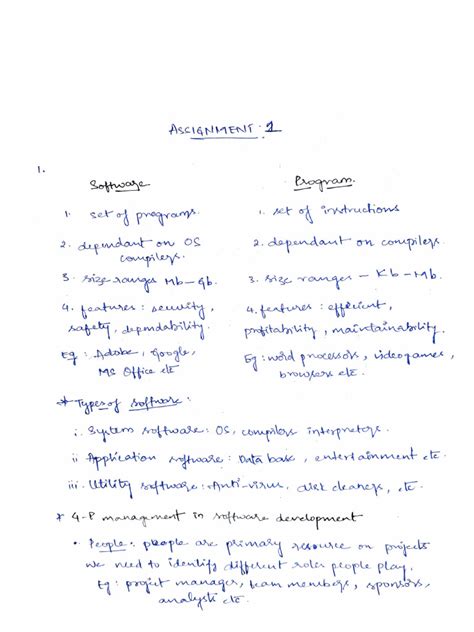 ASSIGNMENT : 1
1.
Software
Program
1. set of programs.
1. set of instructions
2. dependant on OS
compilers.
2. dependant on compilers.
3. size ranges Mb-Gb.
3. size ranges - Kb-Mb.
4. features : security,
safety, dependability.
4. features : efficient,
profitability, maintainability.
Eg : Adobe, Google,
MS Office etc
Eg : word processors, videogames,
browsers etc.
* Types of software :
i. System software : OS, compilers interpreters.
ii Application software : Data base, entertainment etc.
iii. Utility software : Anti-virus, disk cleaners, etc.
* 4-P management in software development
• People : people are primary resource on projects
we need to identify different roles people play.
Eg : project manager, team members, sponsors,
analysts etc.